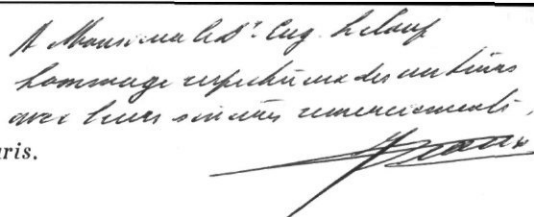 A Monsieur le Dr. Eug.
hommage respectueux des auteurs
avec leurs sincères remerciements.
ris.